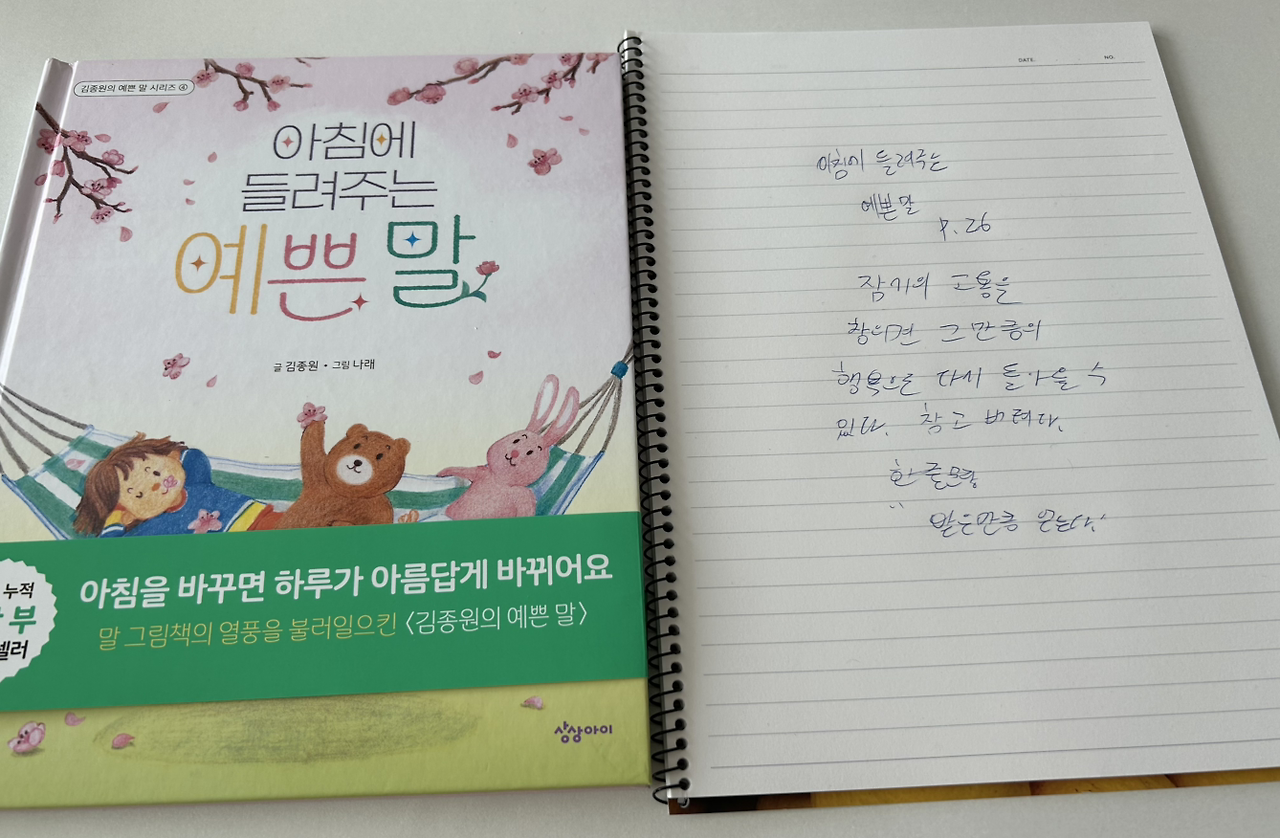 김종원의 예쁜 말 시리즈 ④
아침에
들려주는
예쁜 말
글 김종원 · 그림 나래
누적
부
셀러
아침을 바꾸면 하루가 아름답게 바뀌어요
말 그림책의 열풍을 불러일으킨 〈김종원의 예쁜 말〉
상상아이
DATE.
NO.
아침에 들려주는
예쁜 말
P. 26
잠기의 고통을
그 만큼의
행복으로 다시 돌아올 수
있다. 참고 버텨다.
한 줄
만큼 얻는다.